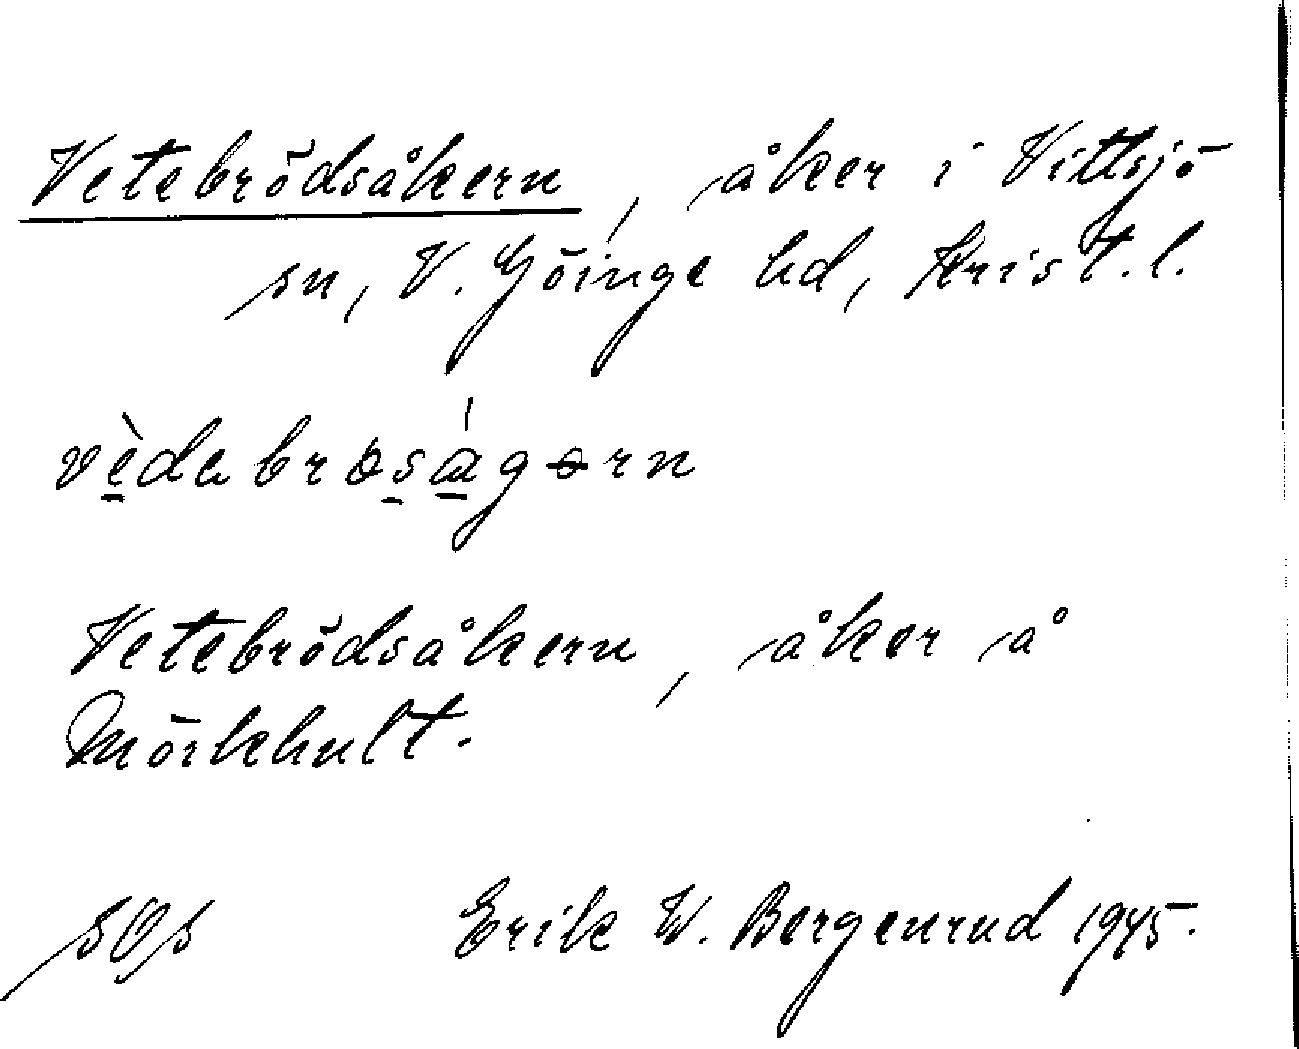 Vetebrödsåkern, åker i Vittsjö
sn, V. Göinge hd, Krist. l.
vèdabrøságərn
Vetebrödsåkern, åker å
Mörkhult.
SOs
Erik W. Bergenrud 1945.